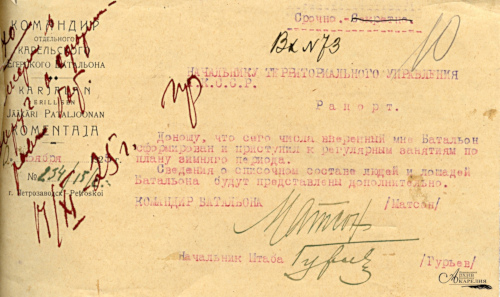 Срочно.-Секретно
Вх № 73
10
КОМАНДИР
ОТДЕЛЬНОГО
КАРЕЛЬСКОГО
ЕГЕРСКОГО БАТАЛЬОНА
KARJALAN
ERILLISEN
JÄÄKÄRI PATALJOONAN
KOMENTAJA
№ 234/15/с
г. Петрозаводск-Petroskoi
17/XI 25 г.
НАЧАЛЬНИКУ ТЕРРИТОРИАЛЬНОГО УПРАВЛЕНИЯ
К.С.С.Р.
Рапорт.
Доношу, что сего числа вверенный мне Батальон
сформирован и приступил к регулярным занятиям по
плану зимнего периода.
Сведения о списочном составе людей и лошадей
Батальона будут представлены дополнительно.
КОМАНДИР БАТАЛЬОНА /Матсон/
Начальник Штаба /Гурьев/
Гурьев
АРХИВ
КАРЕЛИЯ